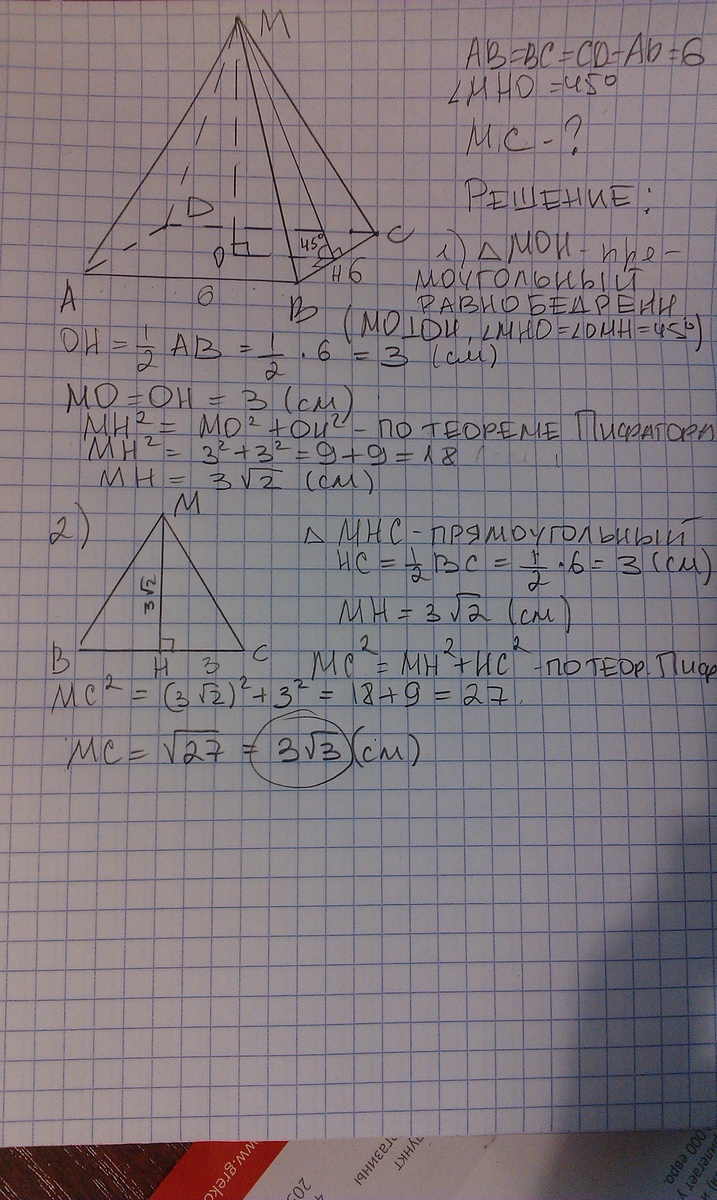 M
AB=BC=CD=AD=6
∠MHO=45°
MC-?
РЕШЕНИЕ:
D
45°
C
O
H
6
A
6
B
1) △MOH-пря-
МОУГОЛЬНЫЙ
РАВНОБЕДРЕНН
(MO⊥OH, ∠MHO=∠OMH=45°)
OH = 1/2 AB = 1/2 · 6 = 3 (см)
MO = OH = 3 (см)
MH² = MO² + OH² - ПО ТЕОРЕМЕ ПИФАГОРА
MH² = 3² + 3² = 9 + 9 = 18
MH = 3√2 (см)
2)
M
3√2
B
H
3
C
△ MHC - ПРЯМОУГОЛЬНЫЙ
HC = 1/2 BC = 1/2 · 6 = 3 (см)
MH = 3√2 (см)
MC² = MH² + HC² - ПО ТЕОР. ПИФ
MC² = (3√2)² + 3² = 18 + 9 = 27.
MC = √27 = 3√3 (см)
www.greko
газины
пункт
000 евро